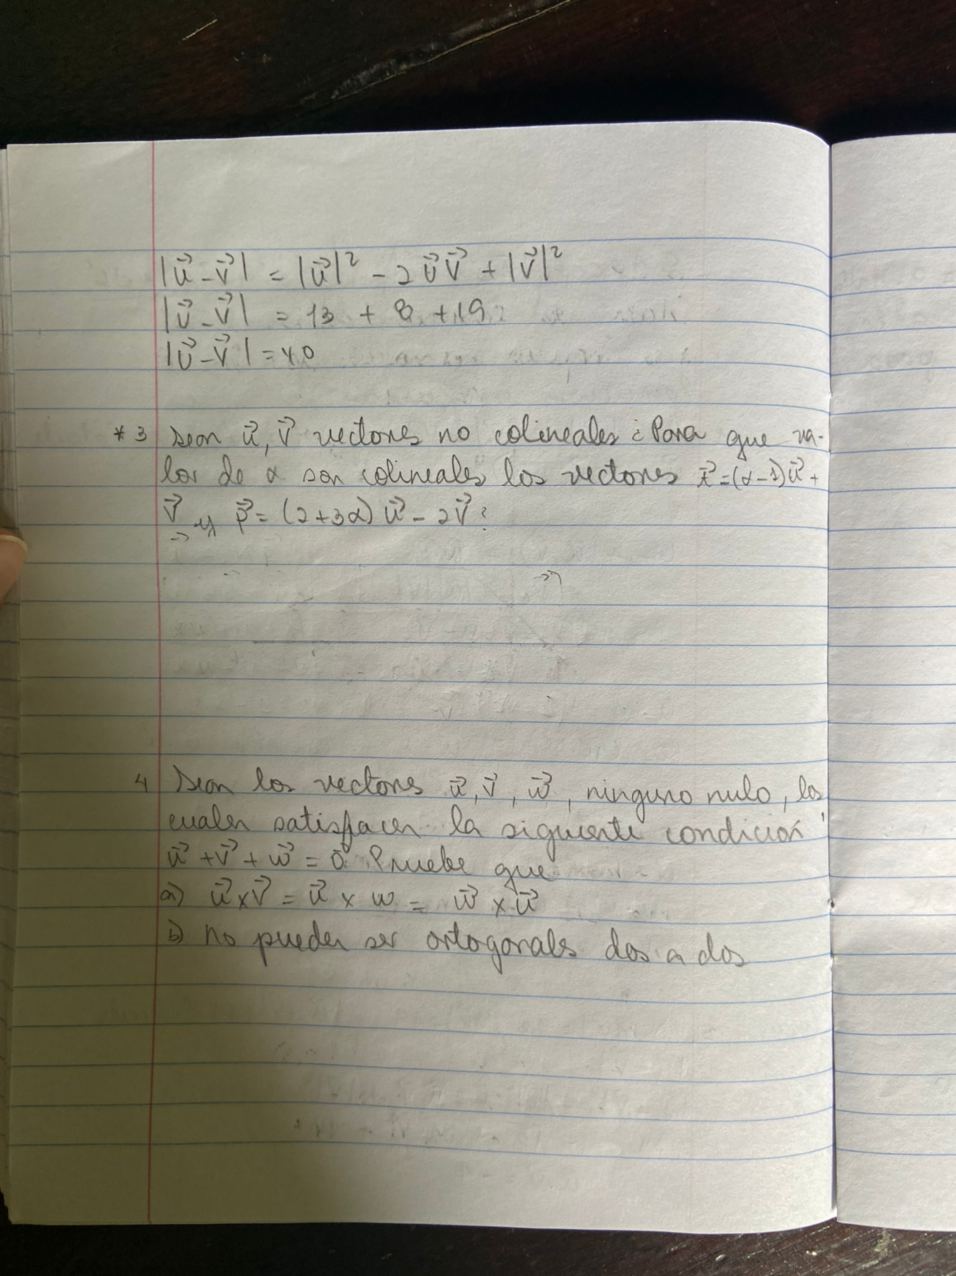 |u⃗ - v⃗| = |u⃗|² - 2 u⃗ v⃗ + |v⃗|²
|u⃗ - v⃗| = 13 + 8 + 19
|u⃗ - v⃗| = 40
* 3 Sean u⃗, v⃗ vectores no colineales ¿Para que va-
lor de α son colineales los vectores x⃗ = (α-1)u⃗ +
v⃗ y p⃗ = (2+3α) u⃗ - 2v⃗?
4 Sean los vectores u⃗, v⃗, w⃗, ninguno nulo, los
cuales satisfacen la siguiente condición
u⃗ + v⃗ + w⃗ = 0⃗. Pruebe que
a) u⃗ x v⃗ = u⃗ x w = w⃗ x u⃗
b) no pueden ser ortogonales dos a dos